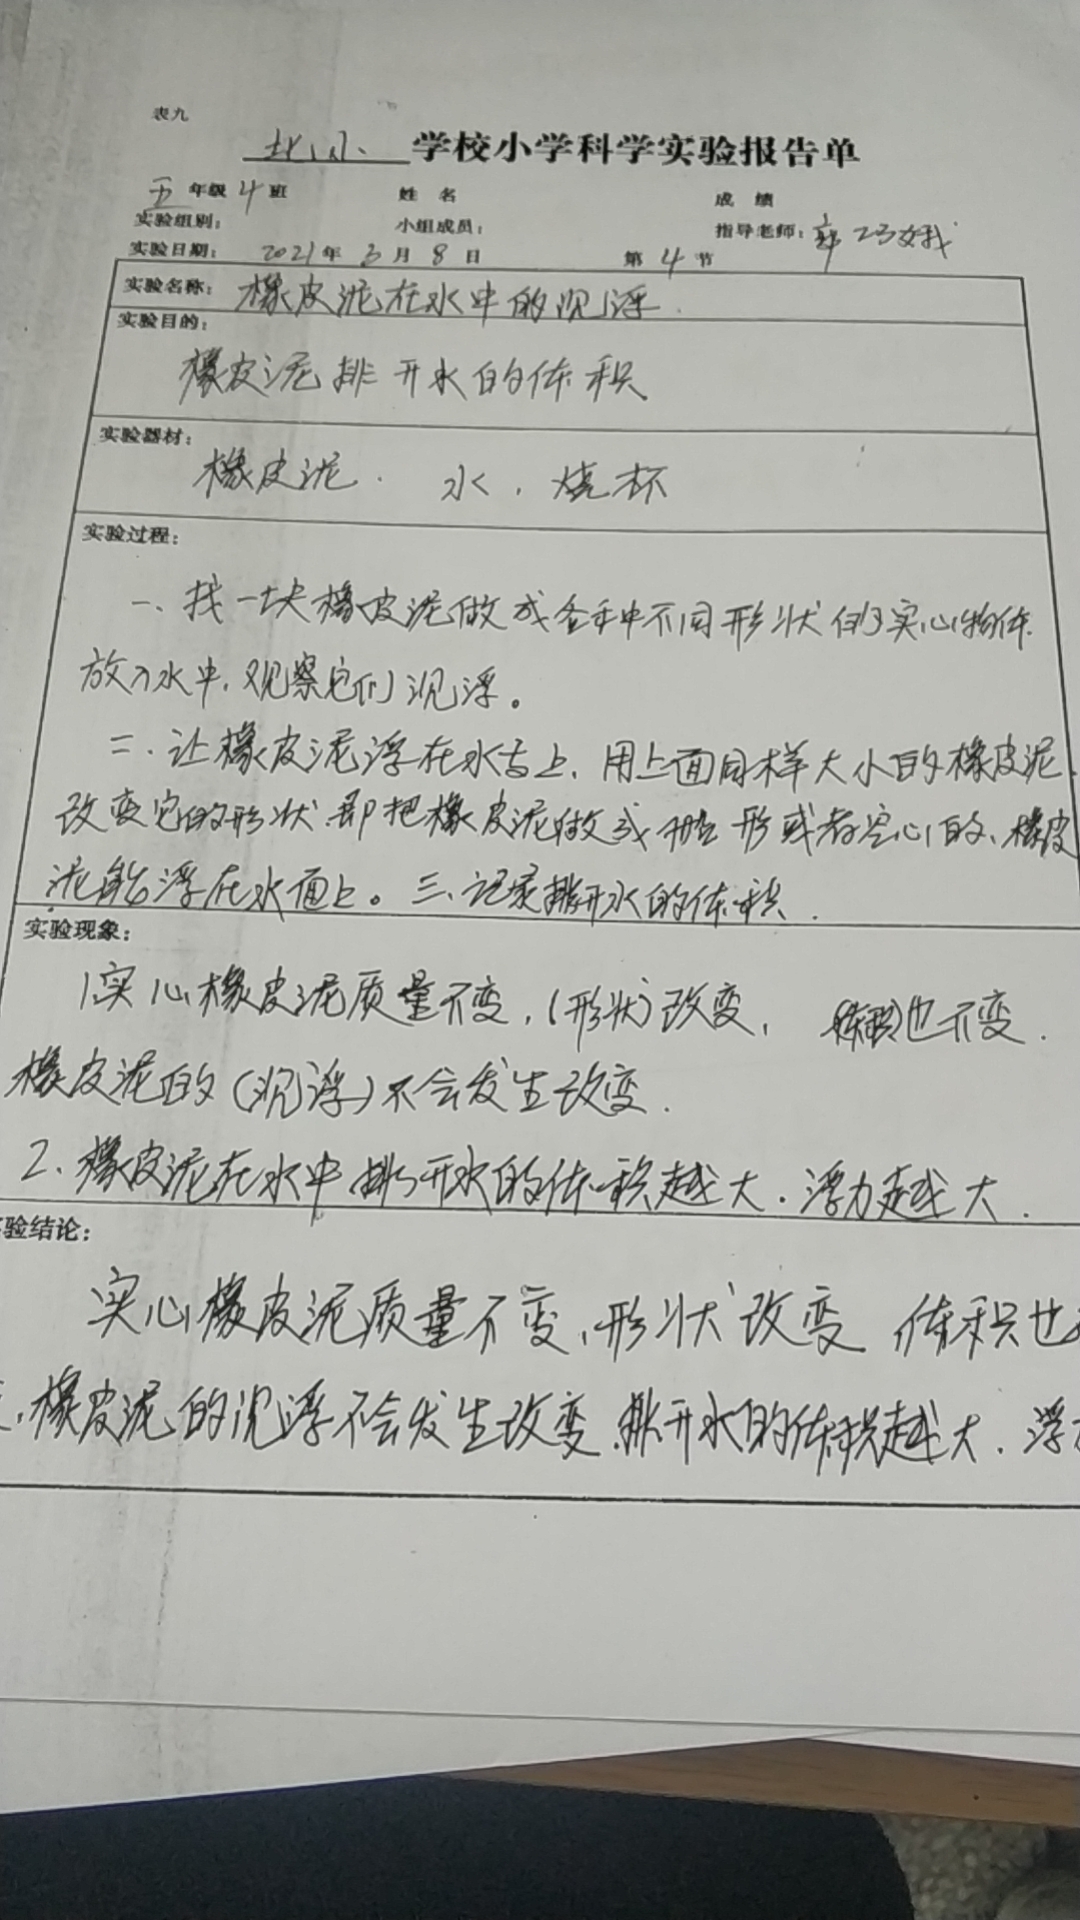 表九
北小 学校小学科学实验报告单
五 年级 4 班 姓 名 成 绩
实验组别: 小组成员: 指导老师: 郭
实验日期: 2021 年 3 月 8 日 第 4 节
实验名称: 橡皮泥在水中的沉浮.
实验目的:
橡皮泥排开水的体积
实验器材:
橡皮泥. 水. 烧杯
实验过程:
一、找一块橡皮泥做成各种不同形状的实心物体
放入水中,观察它们沉浮。
二.让橡皮泥浮在水上,用上面同样大小的橡皮泥,
改变它的形状.即把橡皮泥做成船形或者空心的、橡皮
泥能浮在水面上。三、记录排开水的体积.
实验现象:
1.实心橡皮泥质量不变,(形状)改变, (体积)也不变.
橡皮泥的(沉浮)不会发生改变.
2.橡皮泥在水中排开水的体积越大.浮力越大.
验结论:
实心橡皮泥质量不变,形状改变 体积也
橡皮泥的沉浮不会发生改变.排开水的体积越大.浮